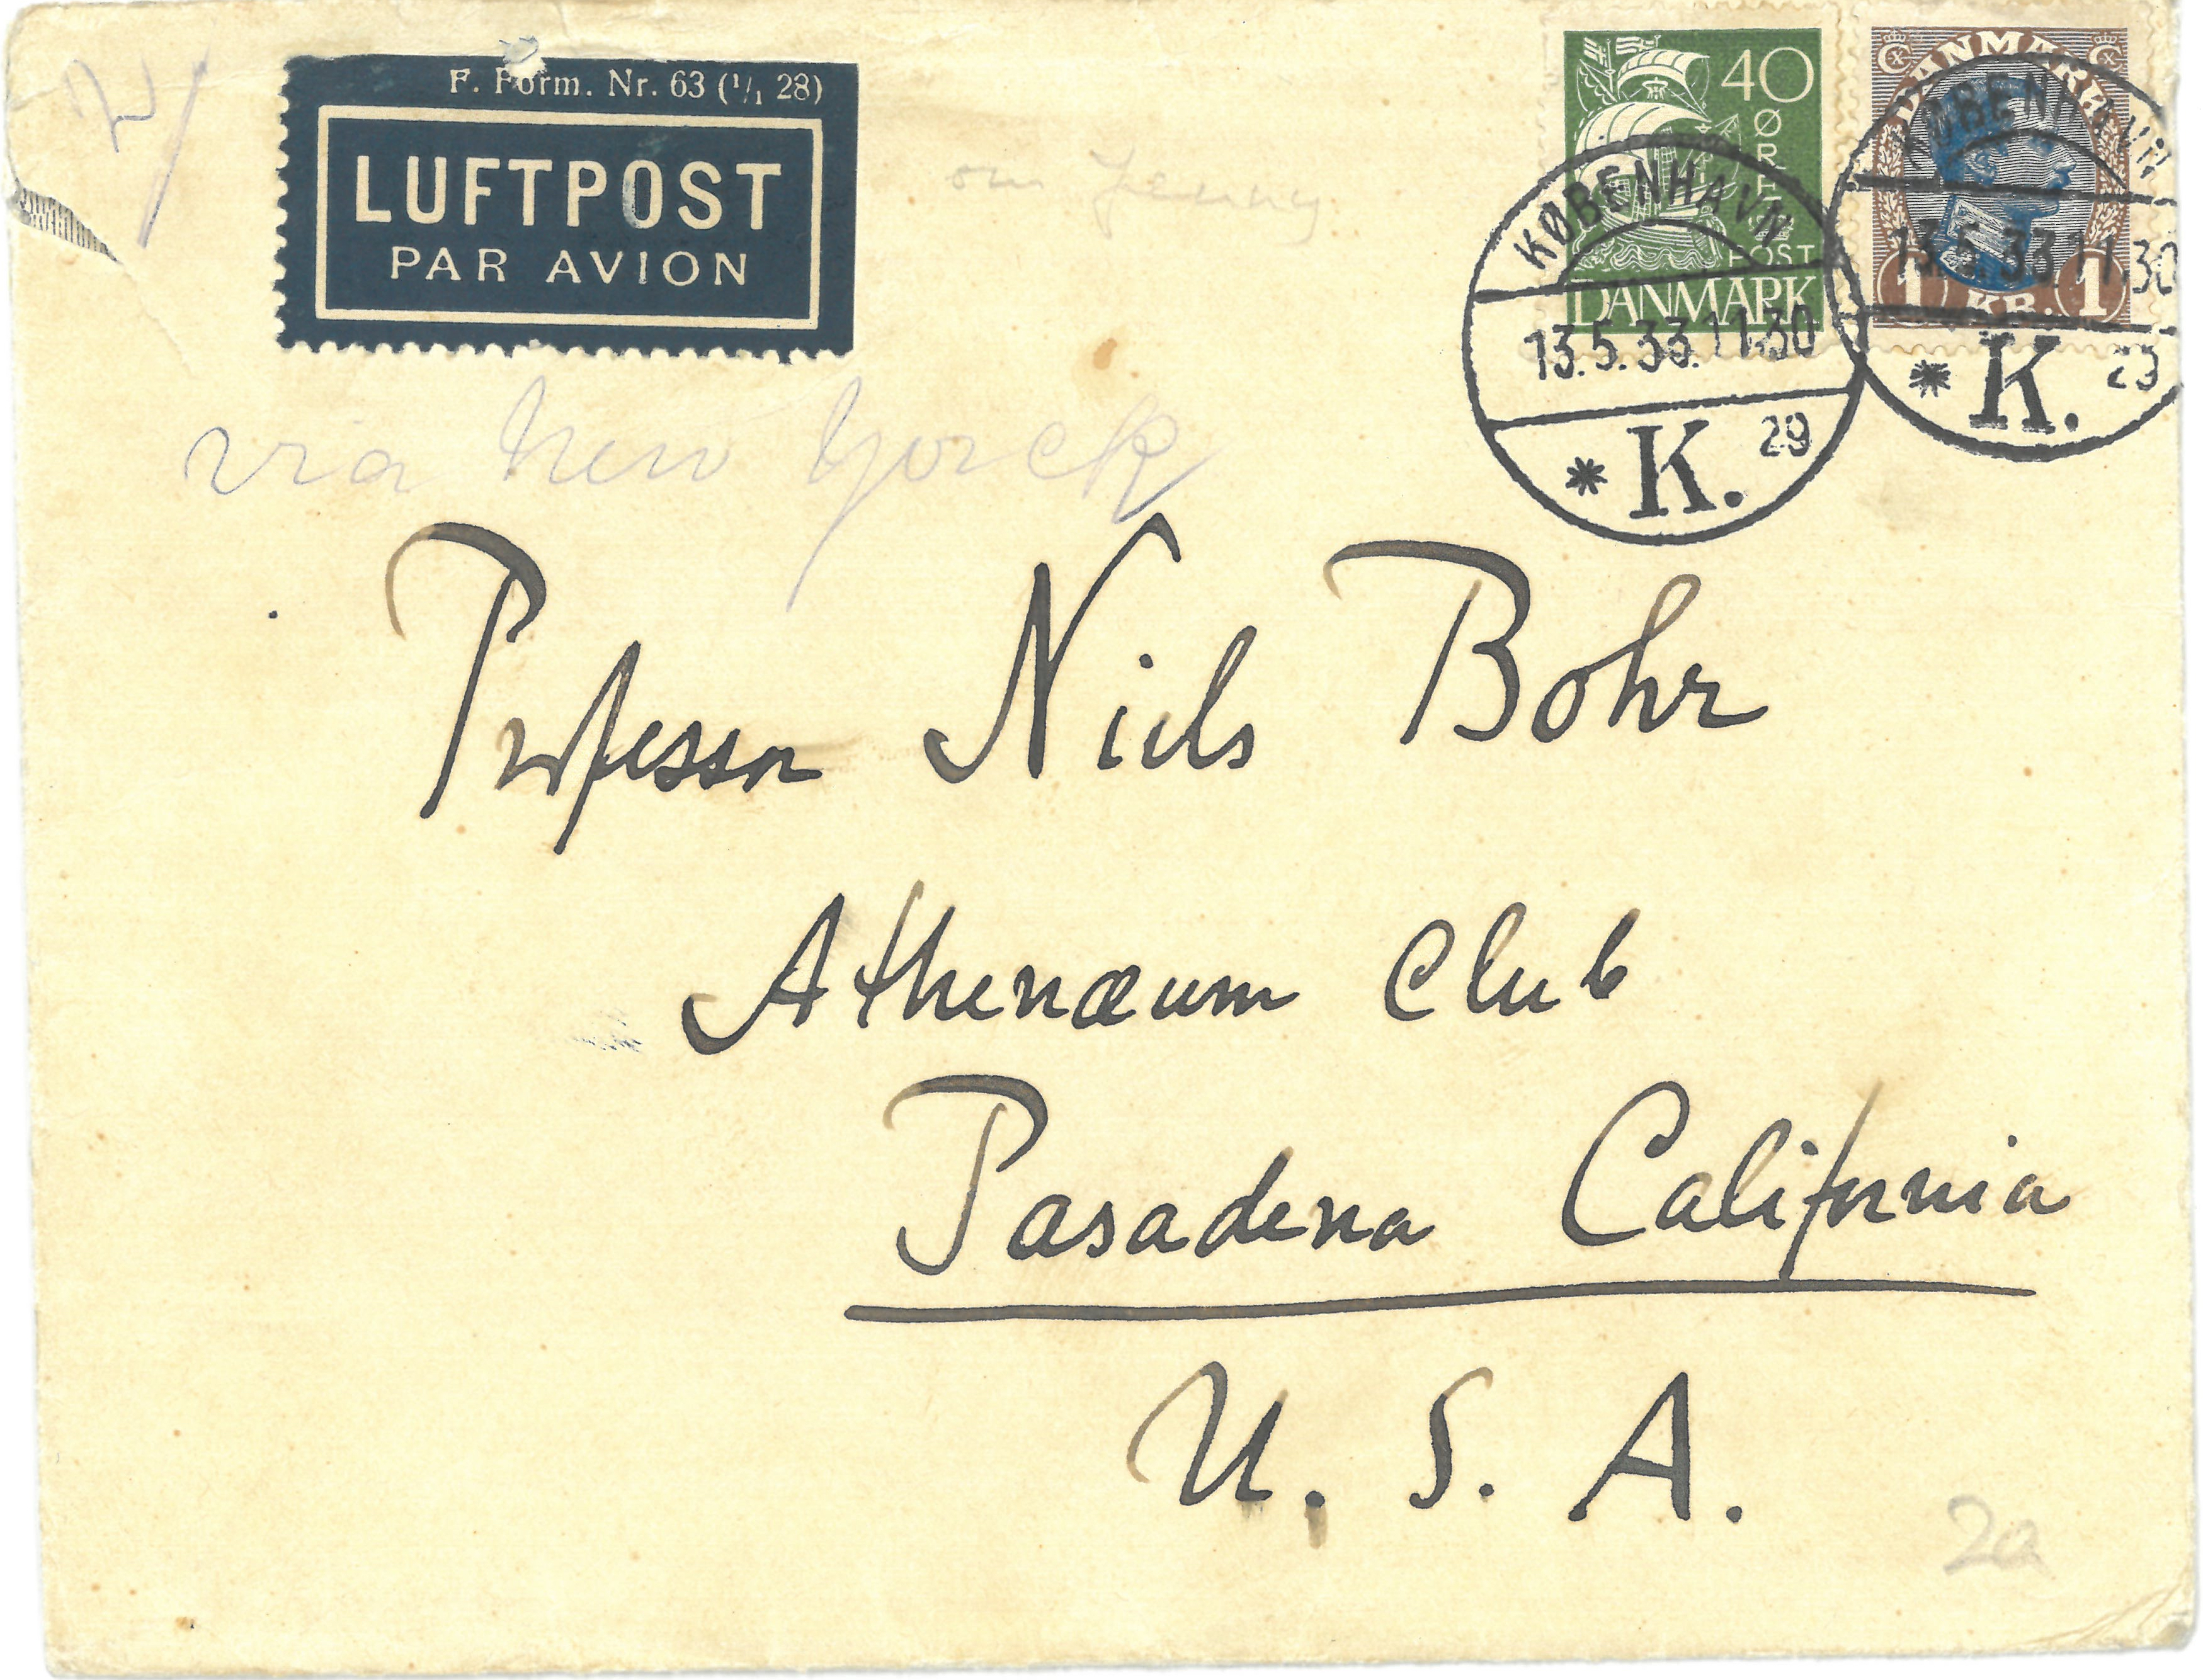 2/
F. Form. Nr. 63 (1/1 28)
LUFTPOST
PAR AVION
om Jenny
40
ØRE
POST
DANMARK
DANMARK
1 KR. 1
KØBENHAVN
13.5.33.11.30
* K. 29
KØBENHAVN
13.5.33.11.30
* K. 29
via New Yorck
Professor Niels Bohr
Athenæum Club
Pasadena California
U. S. A.
2a